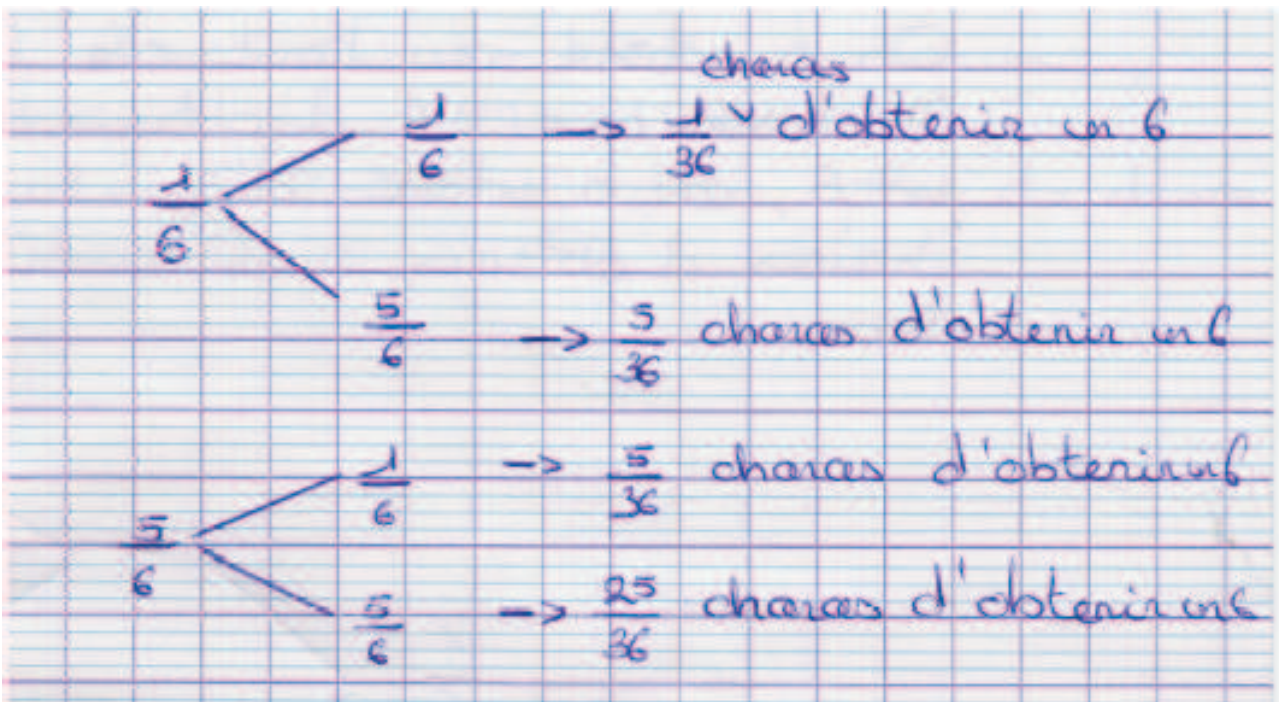 chances
1/6 —> 1/36 ∨ d'obtenir un 6
1/6
5/6 —> 5/36 chances d'obtenir un 6
1/6 —> 5/36 chances d'obtenir un 6
5/6
5/6 —> 25/36 chances d'obtenir un 6